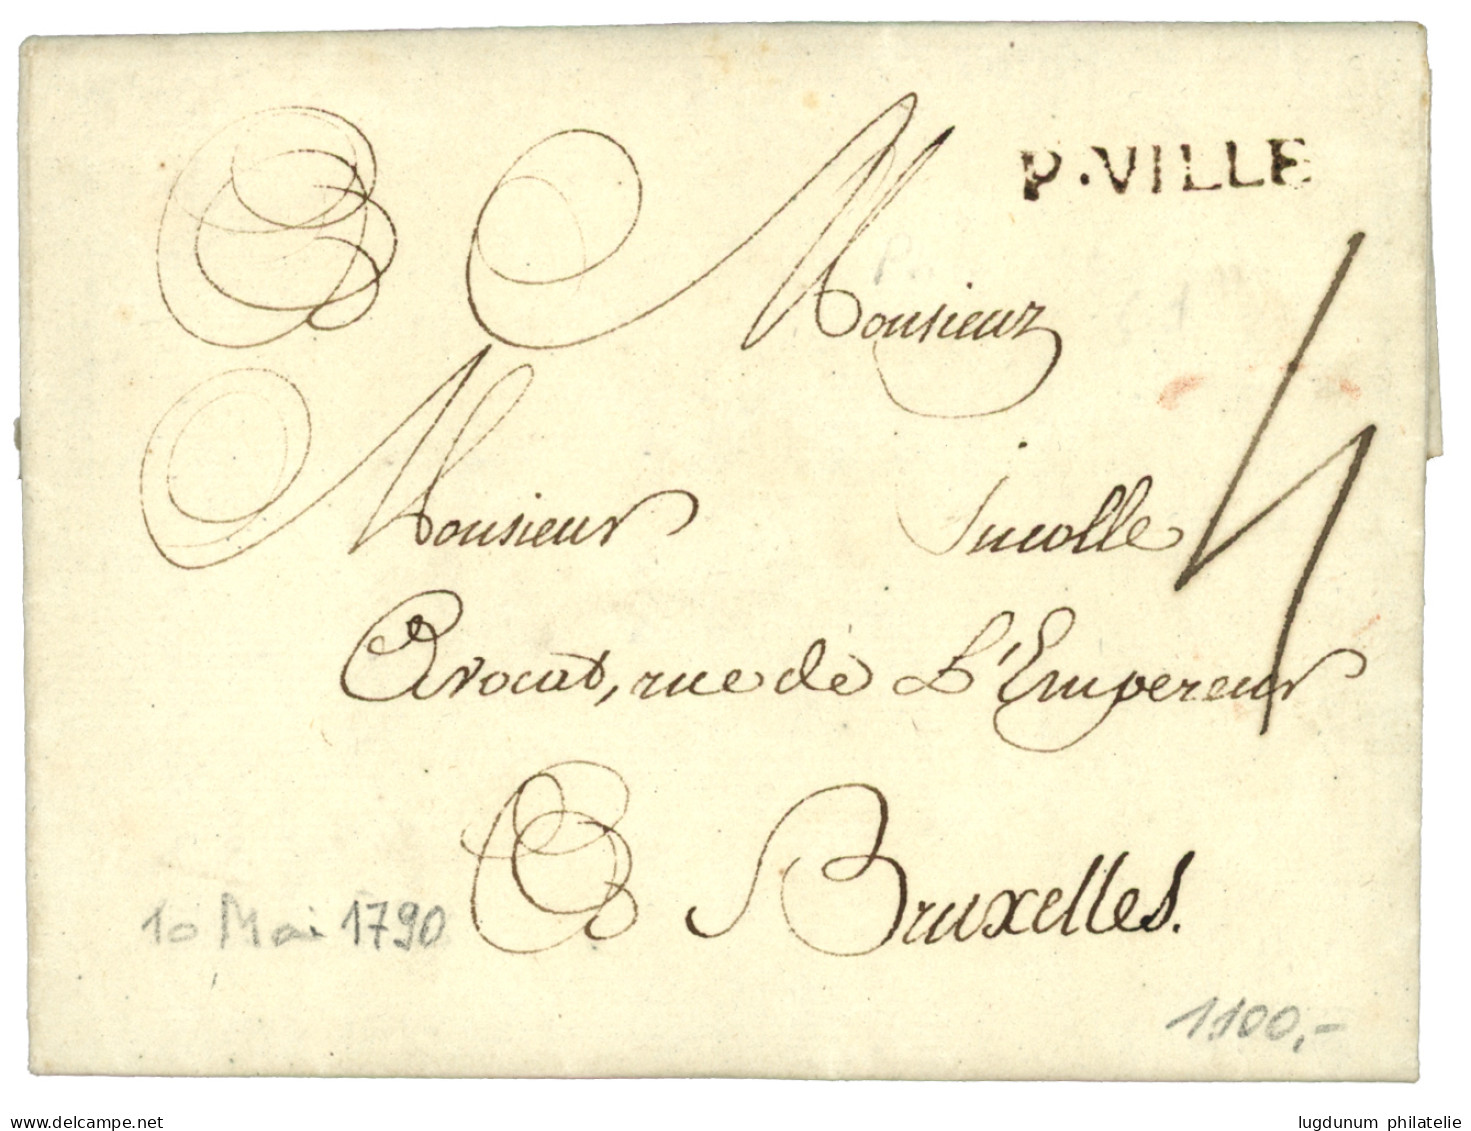 P.VILLE
A Monsieur
Monsieur
Avocat, rue de L'Empereur
A Bruxelles.
4
10 Mai 1790
1100,-
delcampe.net
lugdunum philatelie